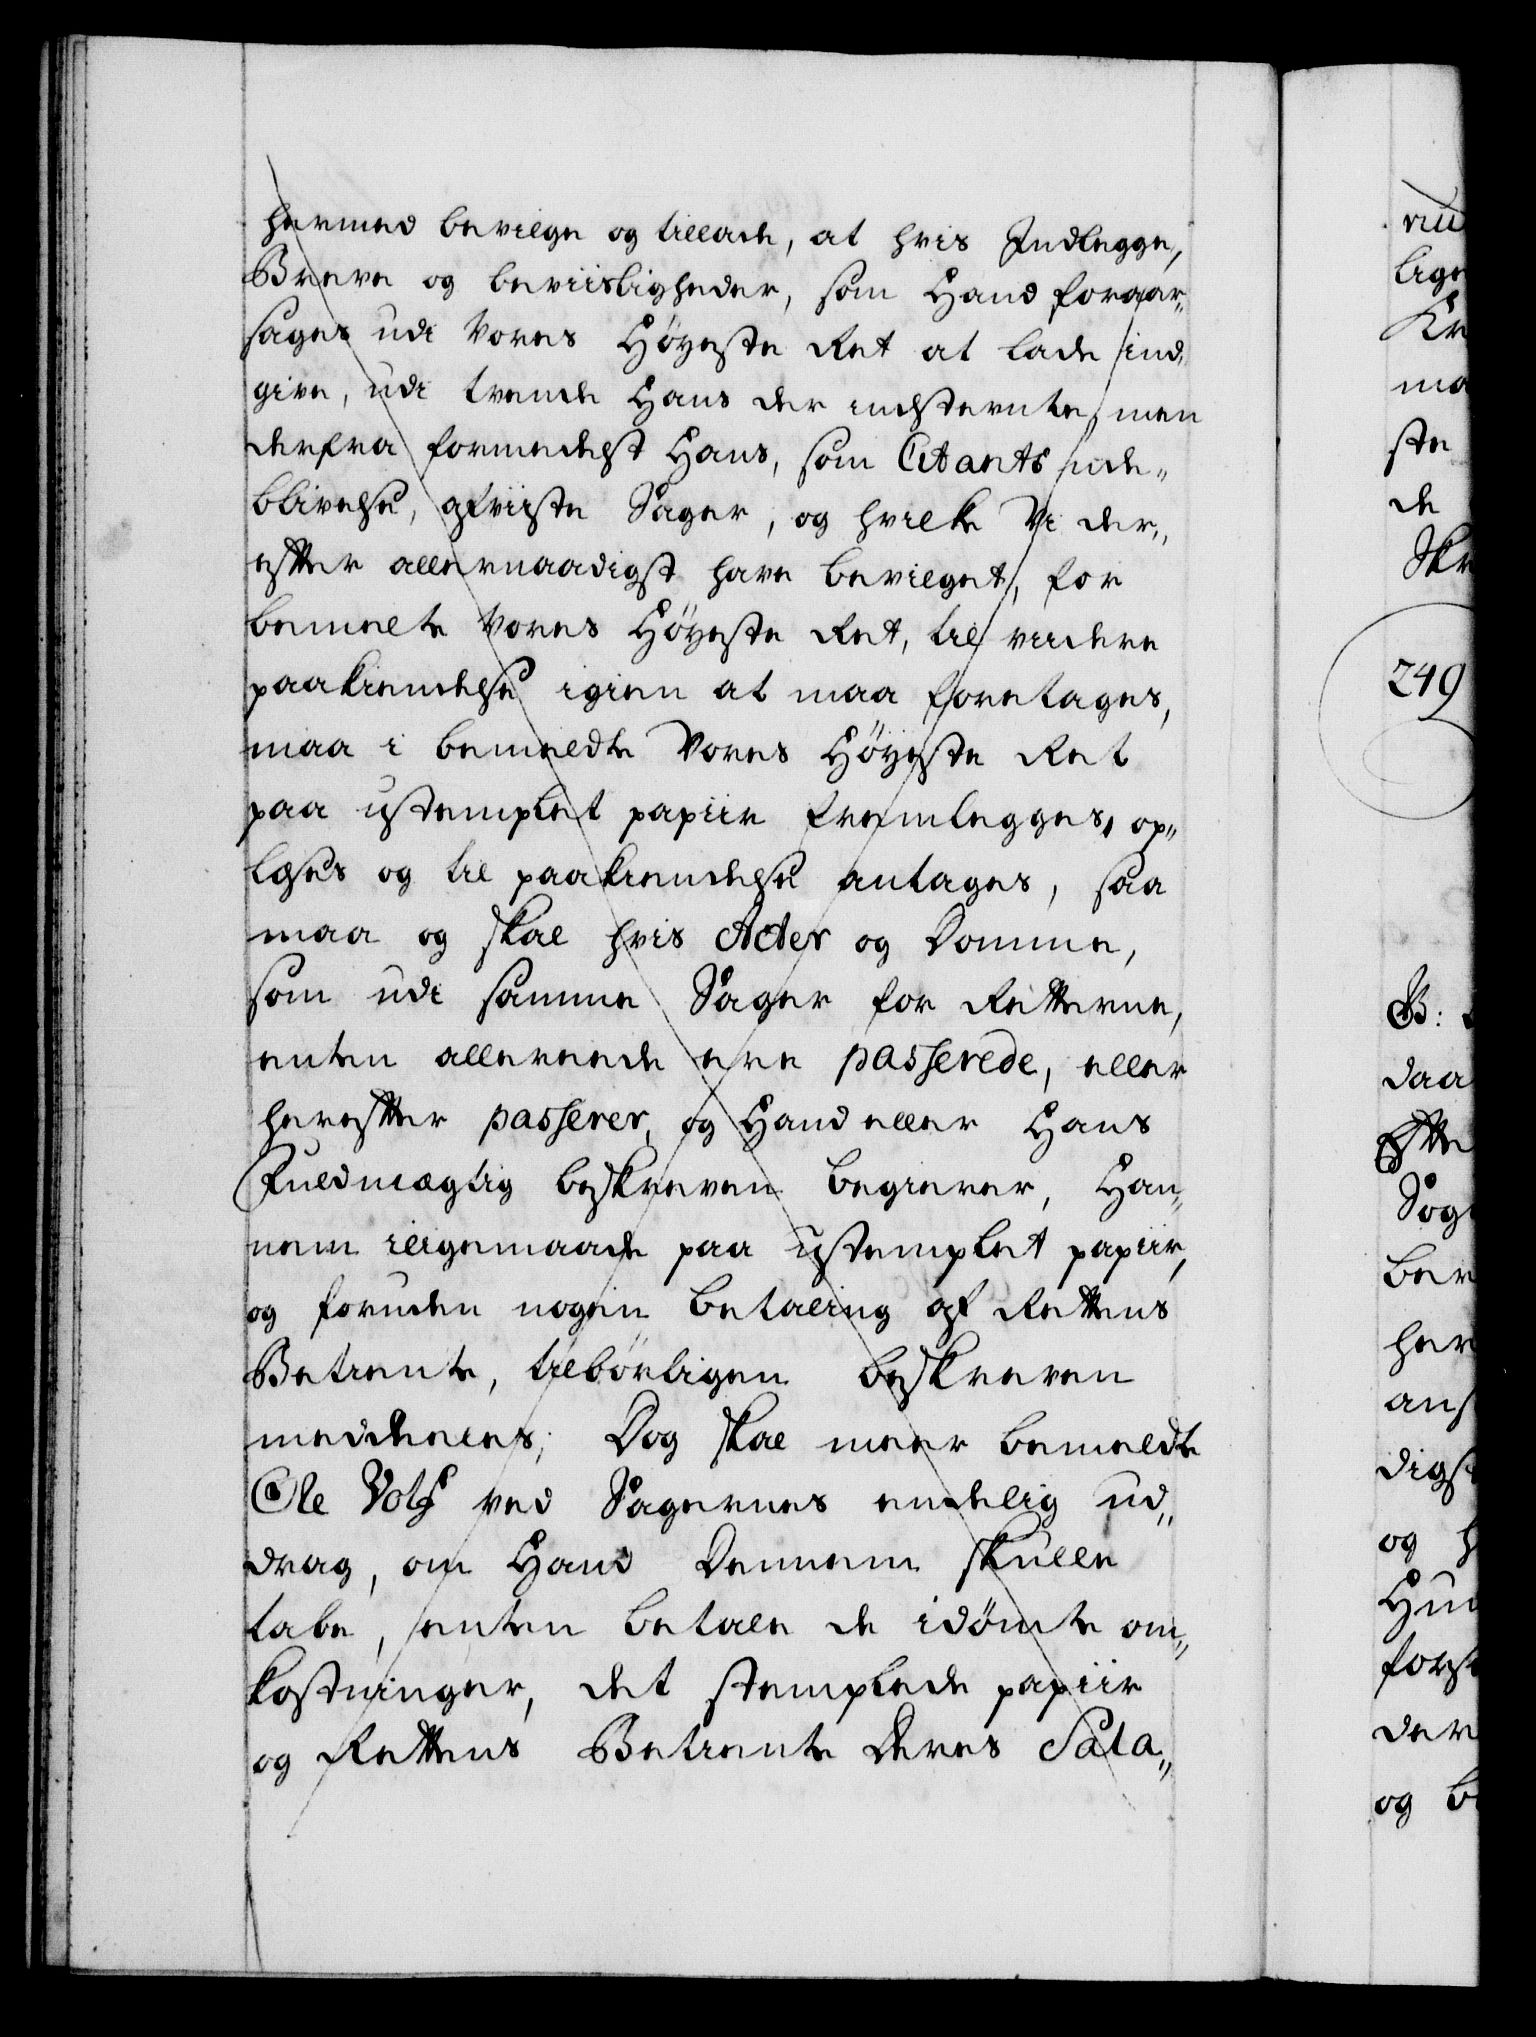 hermed bevilge og tillade, at hvis Indlegge,
Breve og beviisligheder, som Hand foraar„
sages udi Vores Høyeste Ret at lade ind„
give, udi trende Hans der indstevnte, men
derfra formedelst Hans, som Citants ude„
blivelse, afviiste Sager, og hvilke Vi der„
efter allernaadigst have bevilget, for
bemelte Vores Høyeste Ret, til viidere
paakiendelse igien at maa foretages,
maa i bemeldte Vores Høyeste Ret
paa ustemplet papiir fremlegges, op„
læses og til paakiendelse antages, saa
maa og skal hvis Acter og Domme,
som udi samme Sager for Retterne,
enten allereede ere passerede, eller
herefter passerer, og Hand eller Hans
Fuldmægtig beskreven begierer, Han„
nem iligemaade paa ustemplet papiir,
og foruden nogen betaling af Rettens
Betiente, tilbørligen beskreven
meddeeles; Dog skal meer bemeldte
Ole Volf ved Sagernes endelig ud„
drag, om Hand Dennem skulle
tabe, enten betale de idømte om„
kostninger, det stemplede papiir
og Rettens Betiente Deres Sala„
lige
ma
ste
de
249
B:
daa
Sog
ber
her
ans
digst
og
forst
der
og